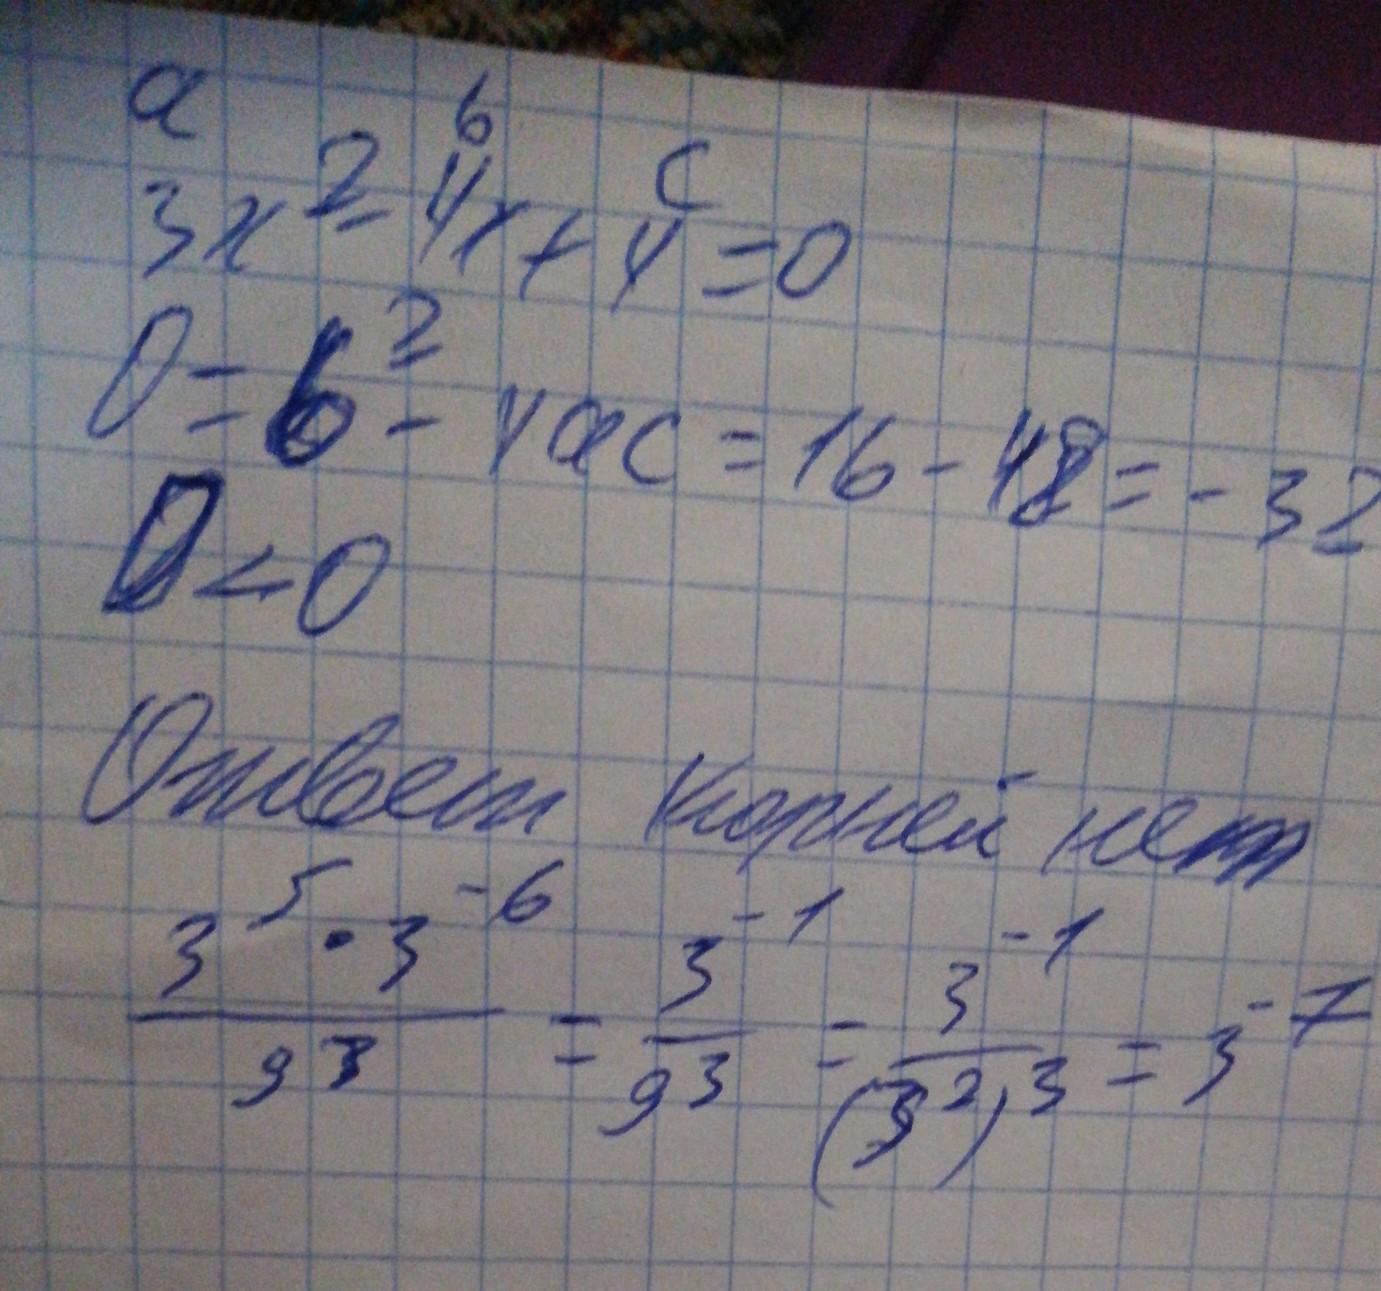 a b c
3x² - 4x + 4 = 0
D = b² - 4ac = 16 - 48 = -32
D < 0
Ответ корней нет
3⁵ · 3⁻⁶ / 9³ = 3⁻¹ / 9³ = 3⁻¹ / (3²)³ = 3⁻⁷